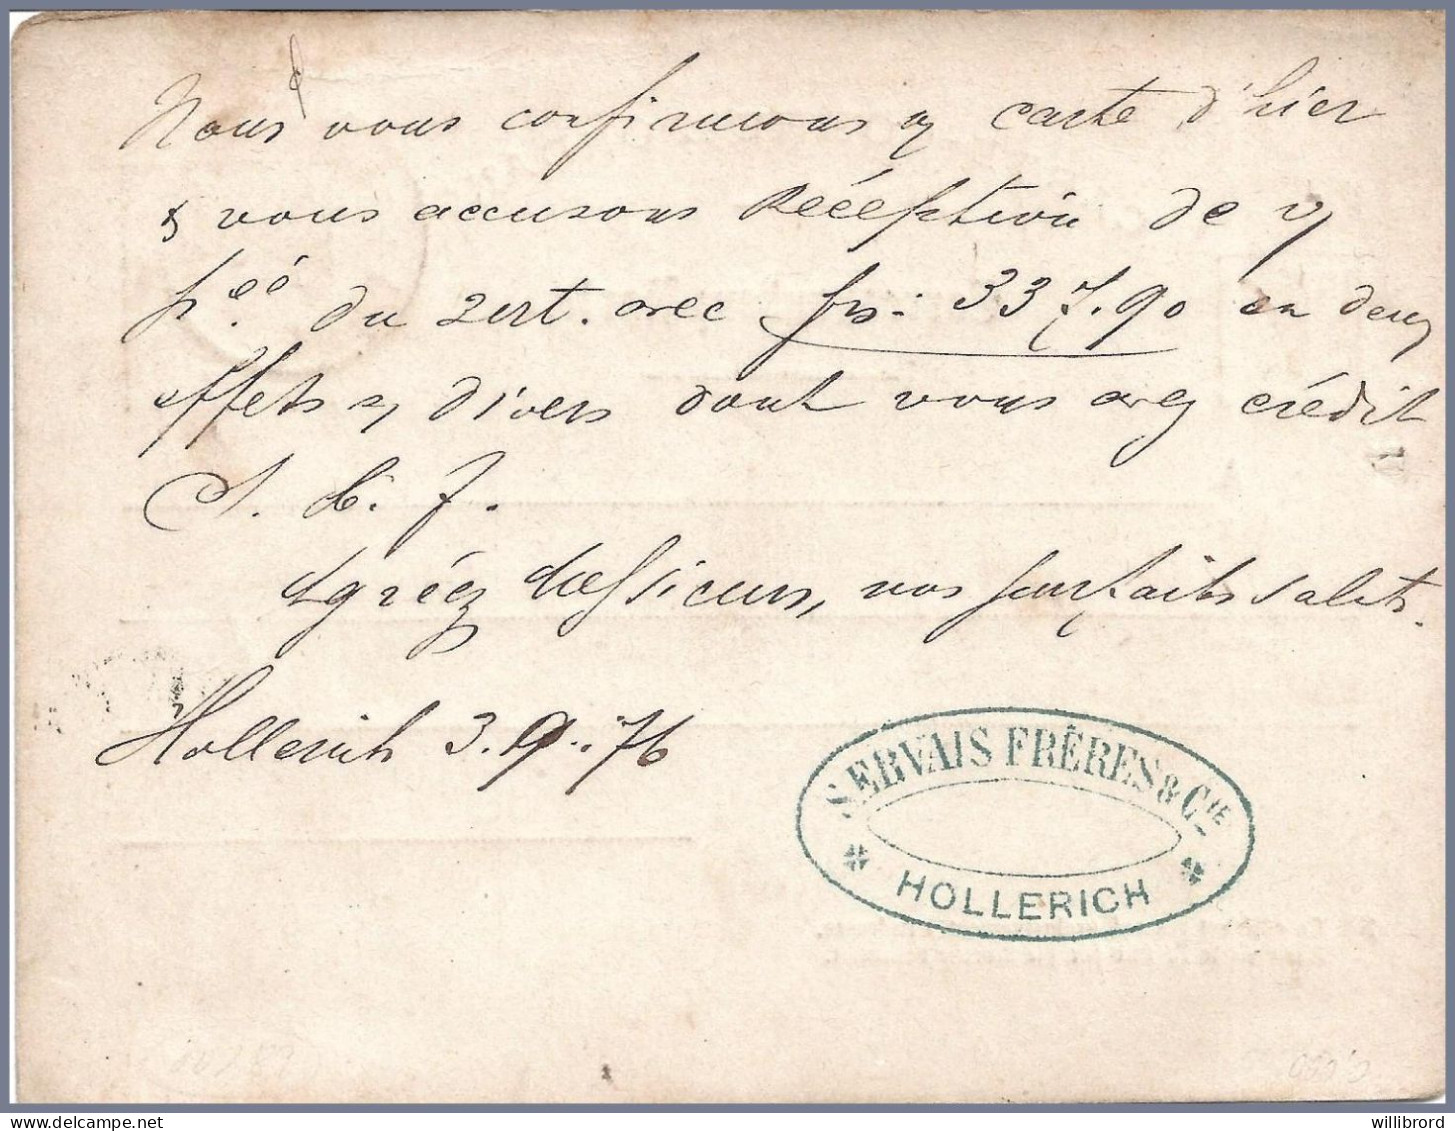 Nous vous confirmons n/ carte d'hier
& vous accusons Réception de v/
h.éé du 2 ert. avec frs: 337.90 en deux
effets s/ divers dont vous avez crédit
S. b. f.
Agréez Messieurs, nos parfaits saluts.
Hollerich 3.9.76
SERVAIS FRÈRES & CIE
HOLLERICH
willibrord